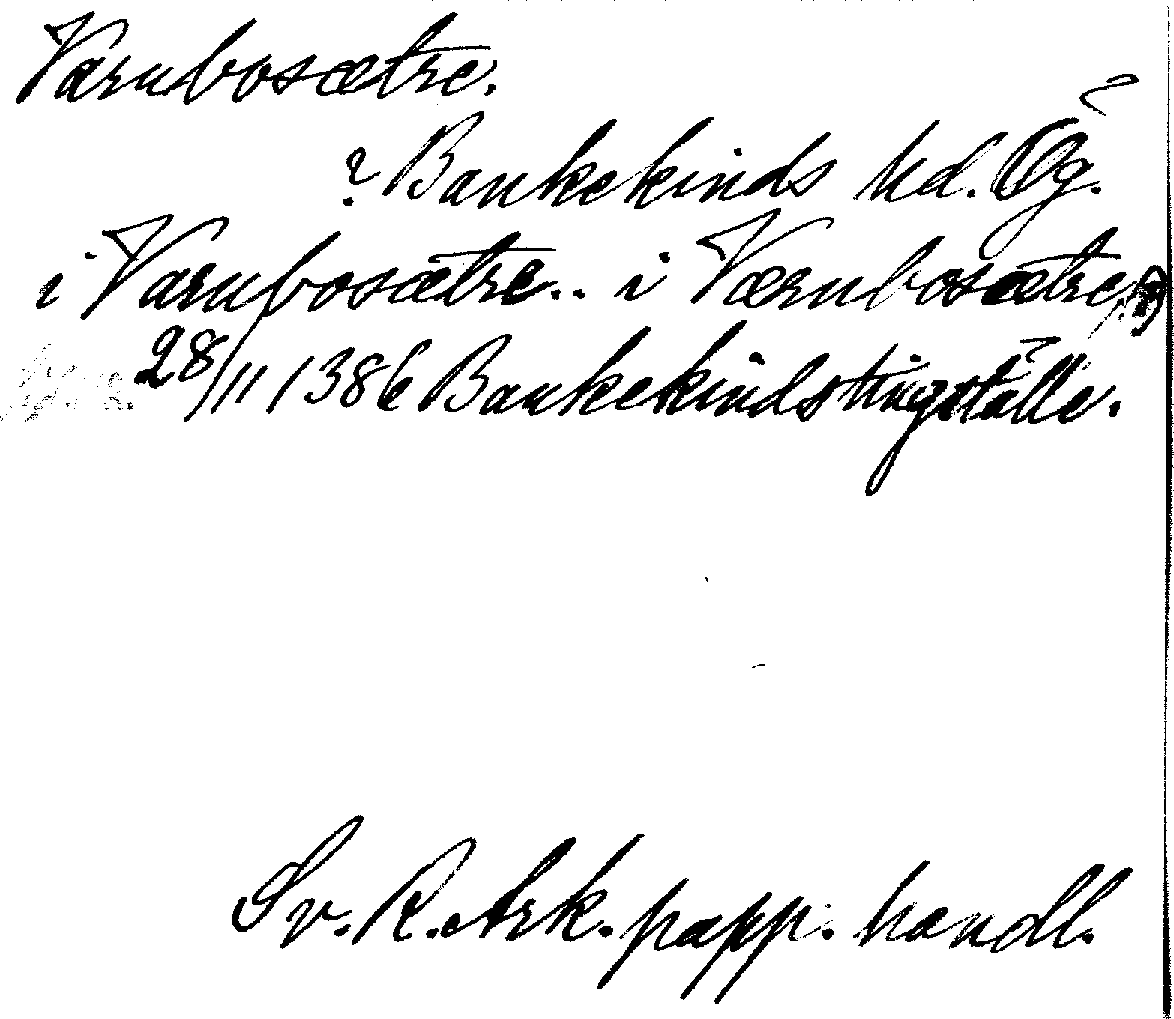 Værnbosætre.
? Bankekinds hd. Ög.
i Varnbosætre.. i Værnbosætre
28/11 1386 Bankekindstingställe.
Sv. R. Ark. papp. handl.